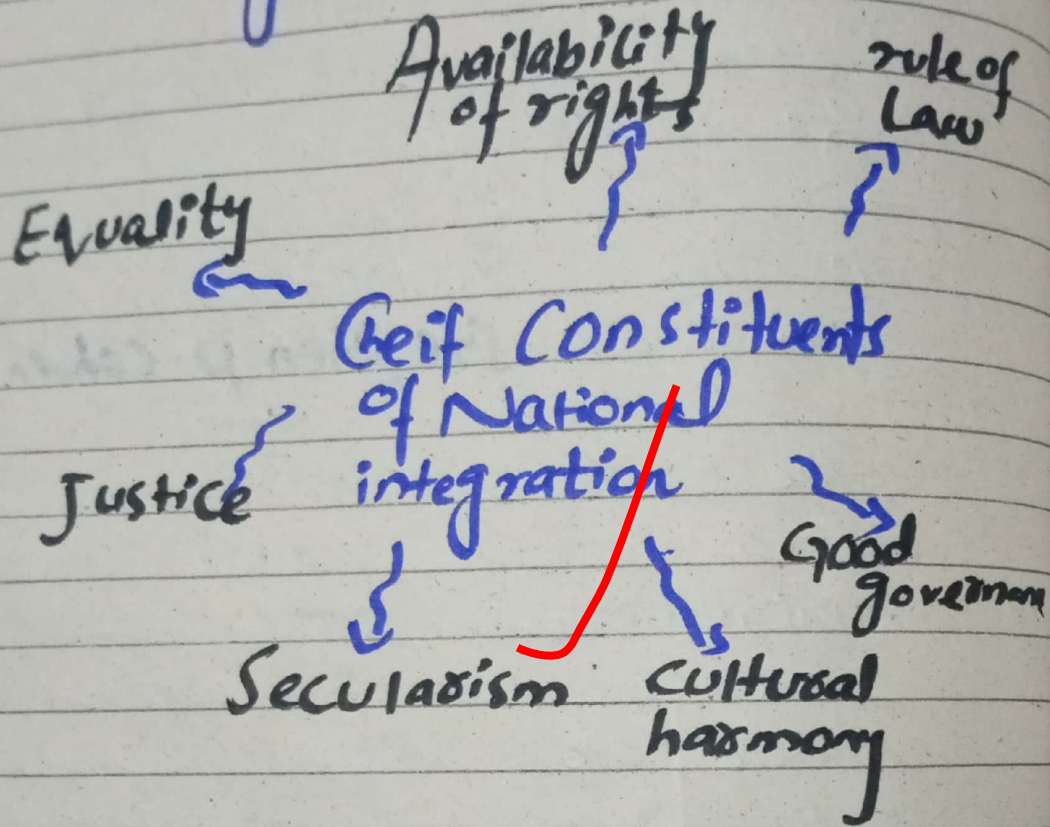 Availability
of rights
rule of
Law
Equality
Cheif Constituents
of National
integration
Justice
Good
Secularism
cultural
harmony